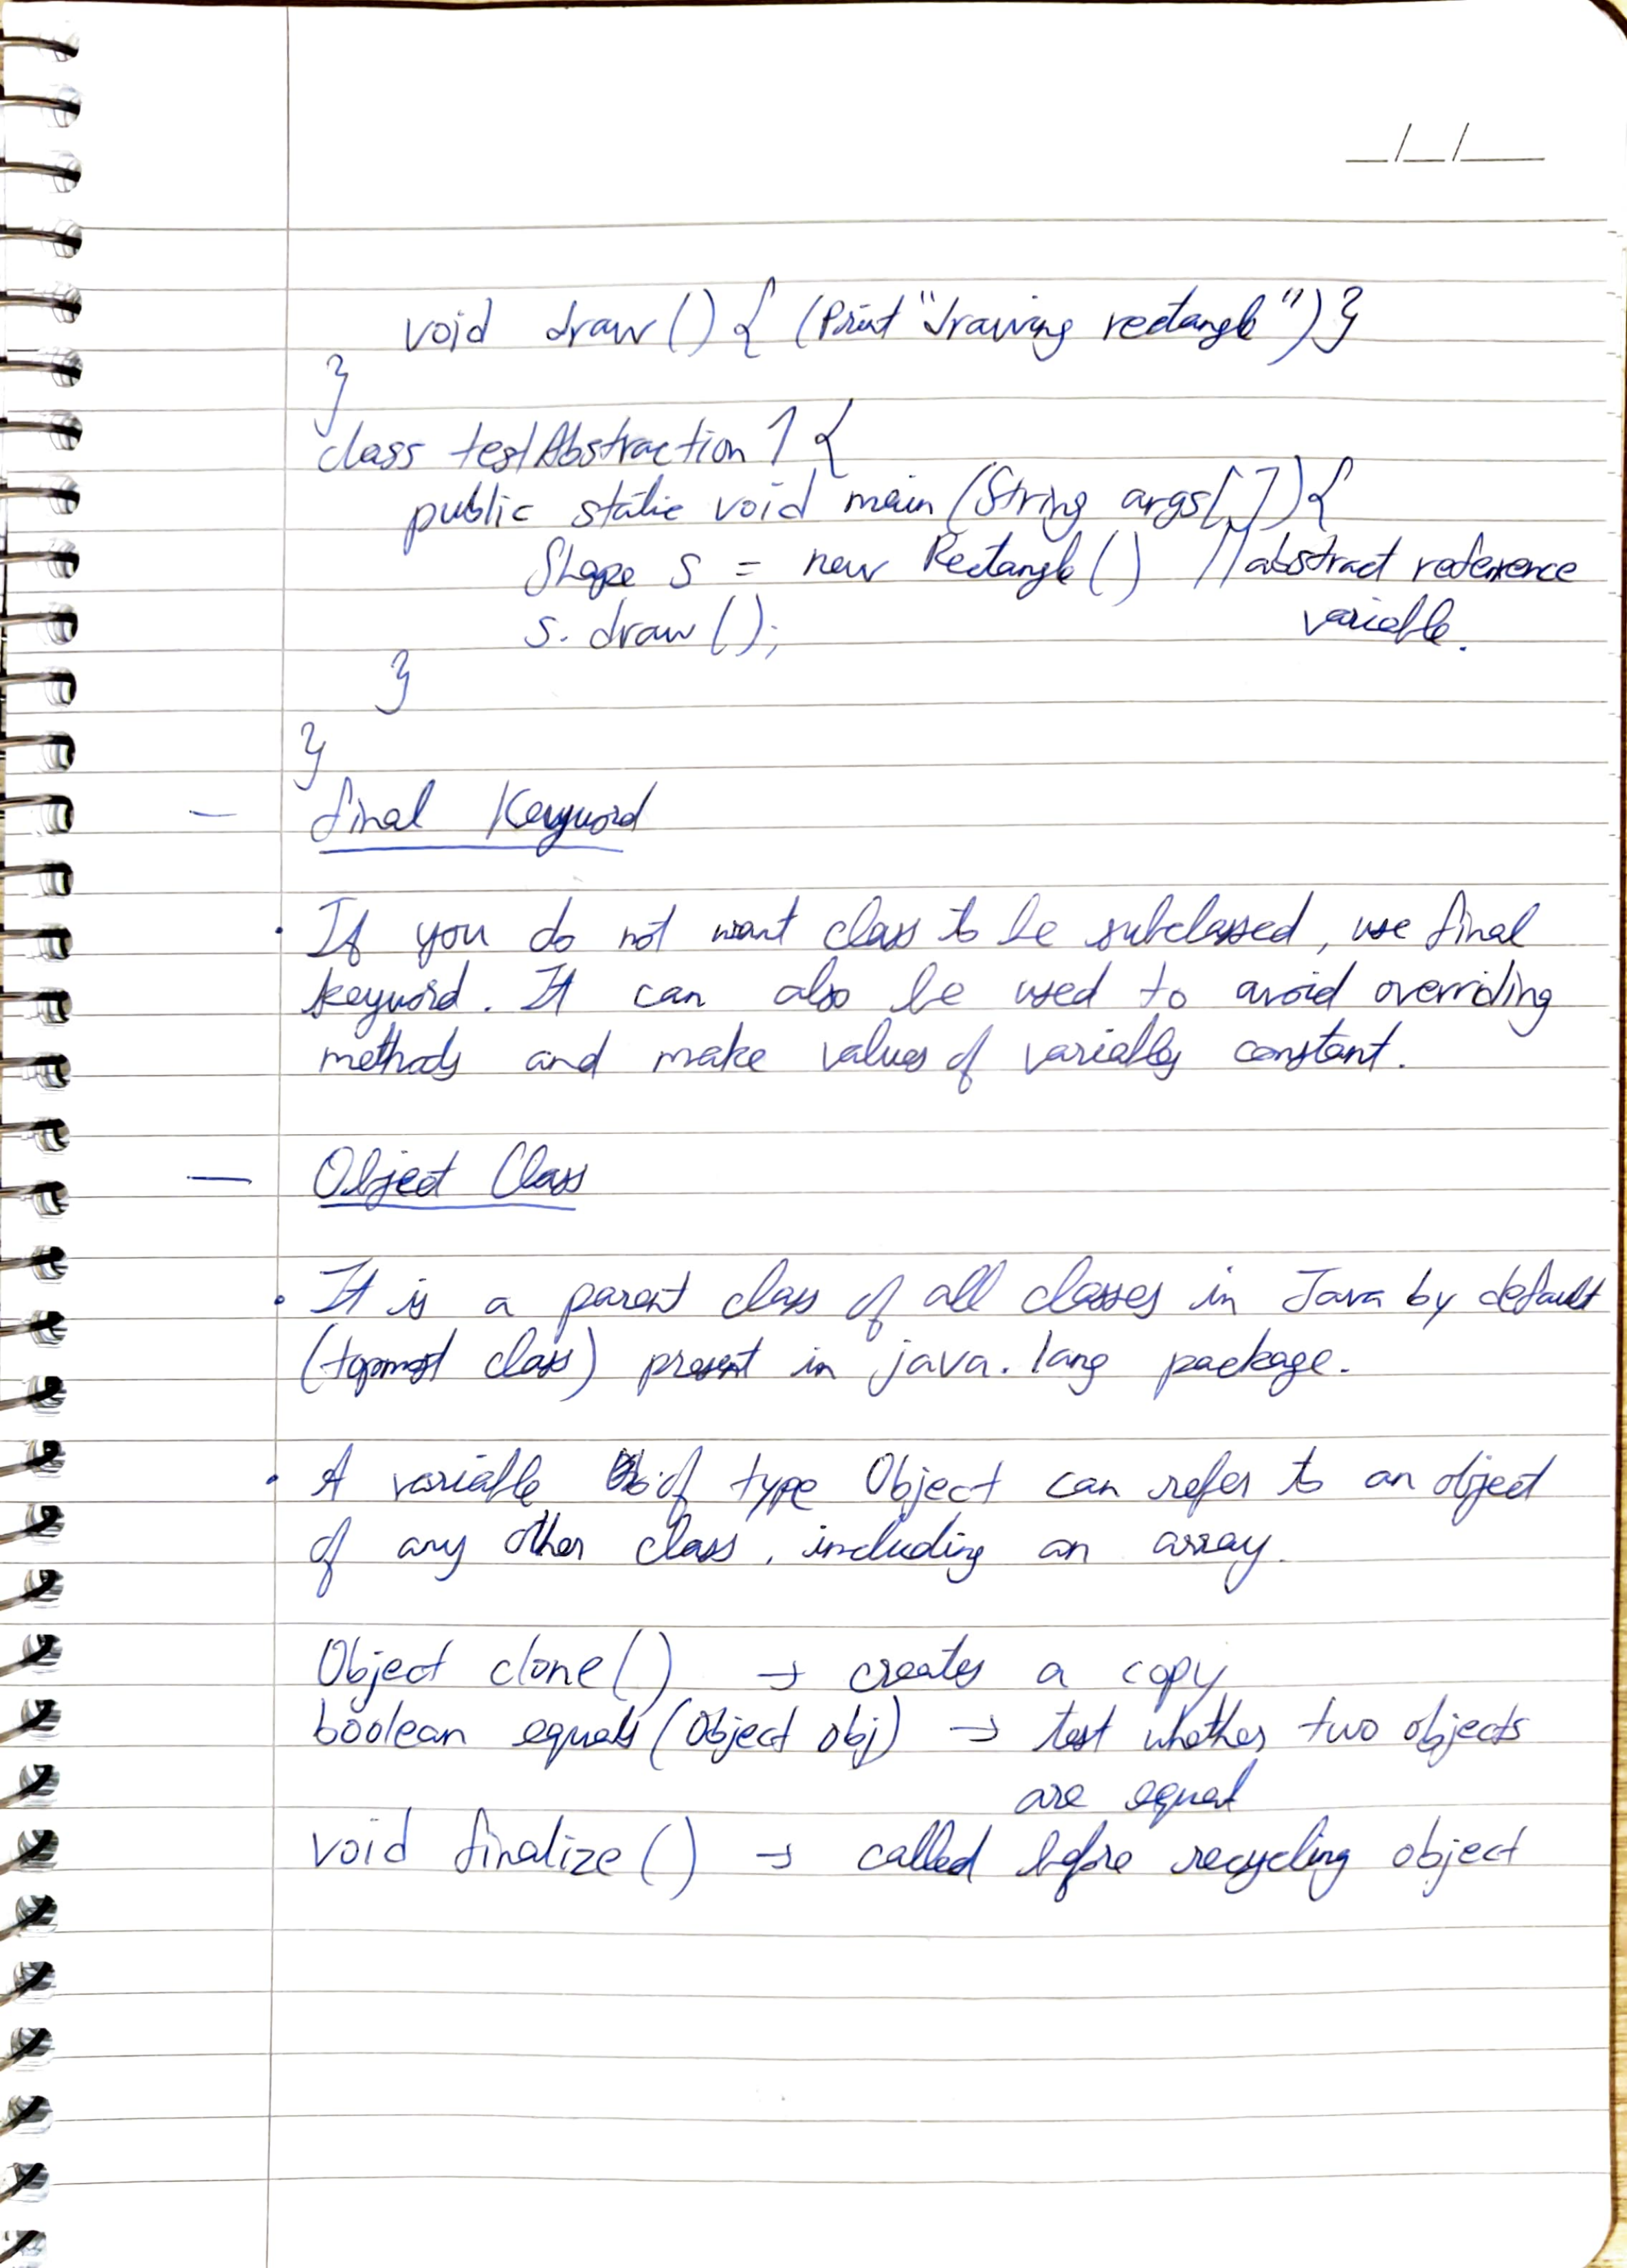 void draw() { (Print "drawing rectangle") }
}
class testAbstraction 1 {
public static void main (String args[]) {
Shape s = new Rectangle() // abstract reference
variable.
s. draw();
}
}
— final Keyword
• If you do not want class to be subclassed, use final
keyword. It can also be used to avoid overriding
methods and make values of variables constant.
— Object Class
• It is a parent class of all classes in Java by default
(topmost class) present in java. lang package.
• A variable of type Object can refer to an object
of any other class, including an array.
Object clone() → creates a copy
boolean equals (Object obj) → test whether two objects
are equal
void finalize() → called before recycling object